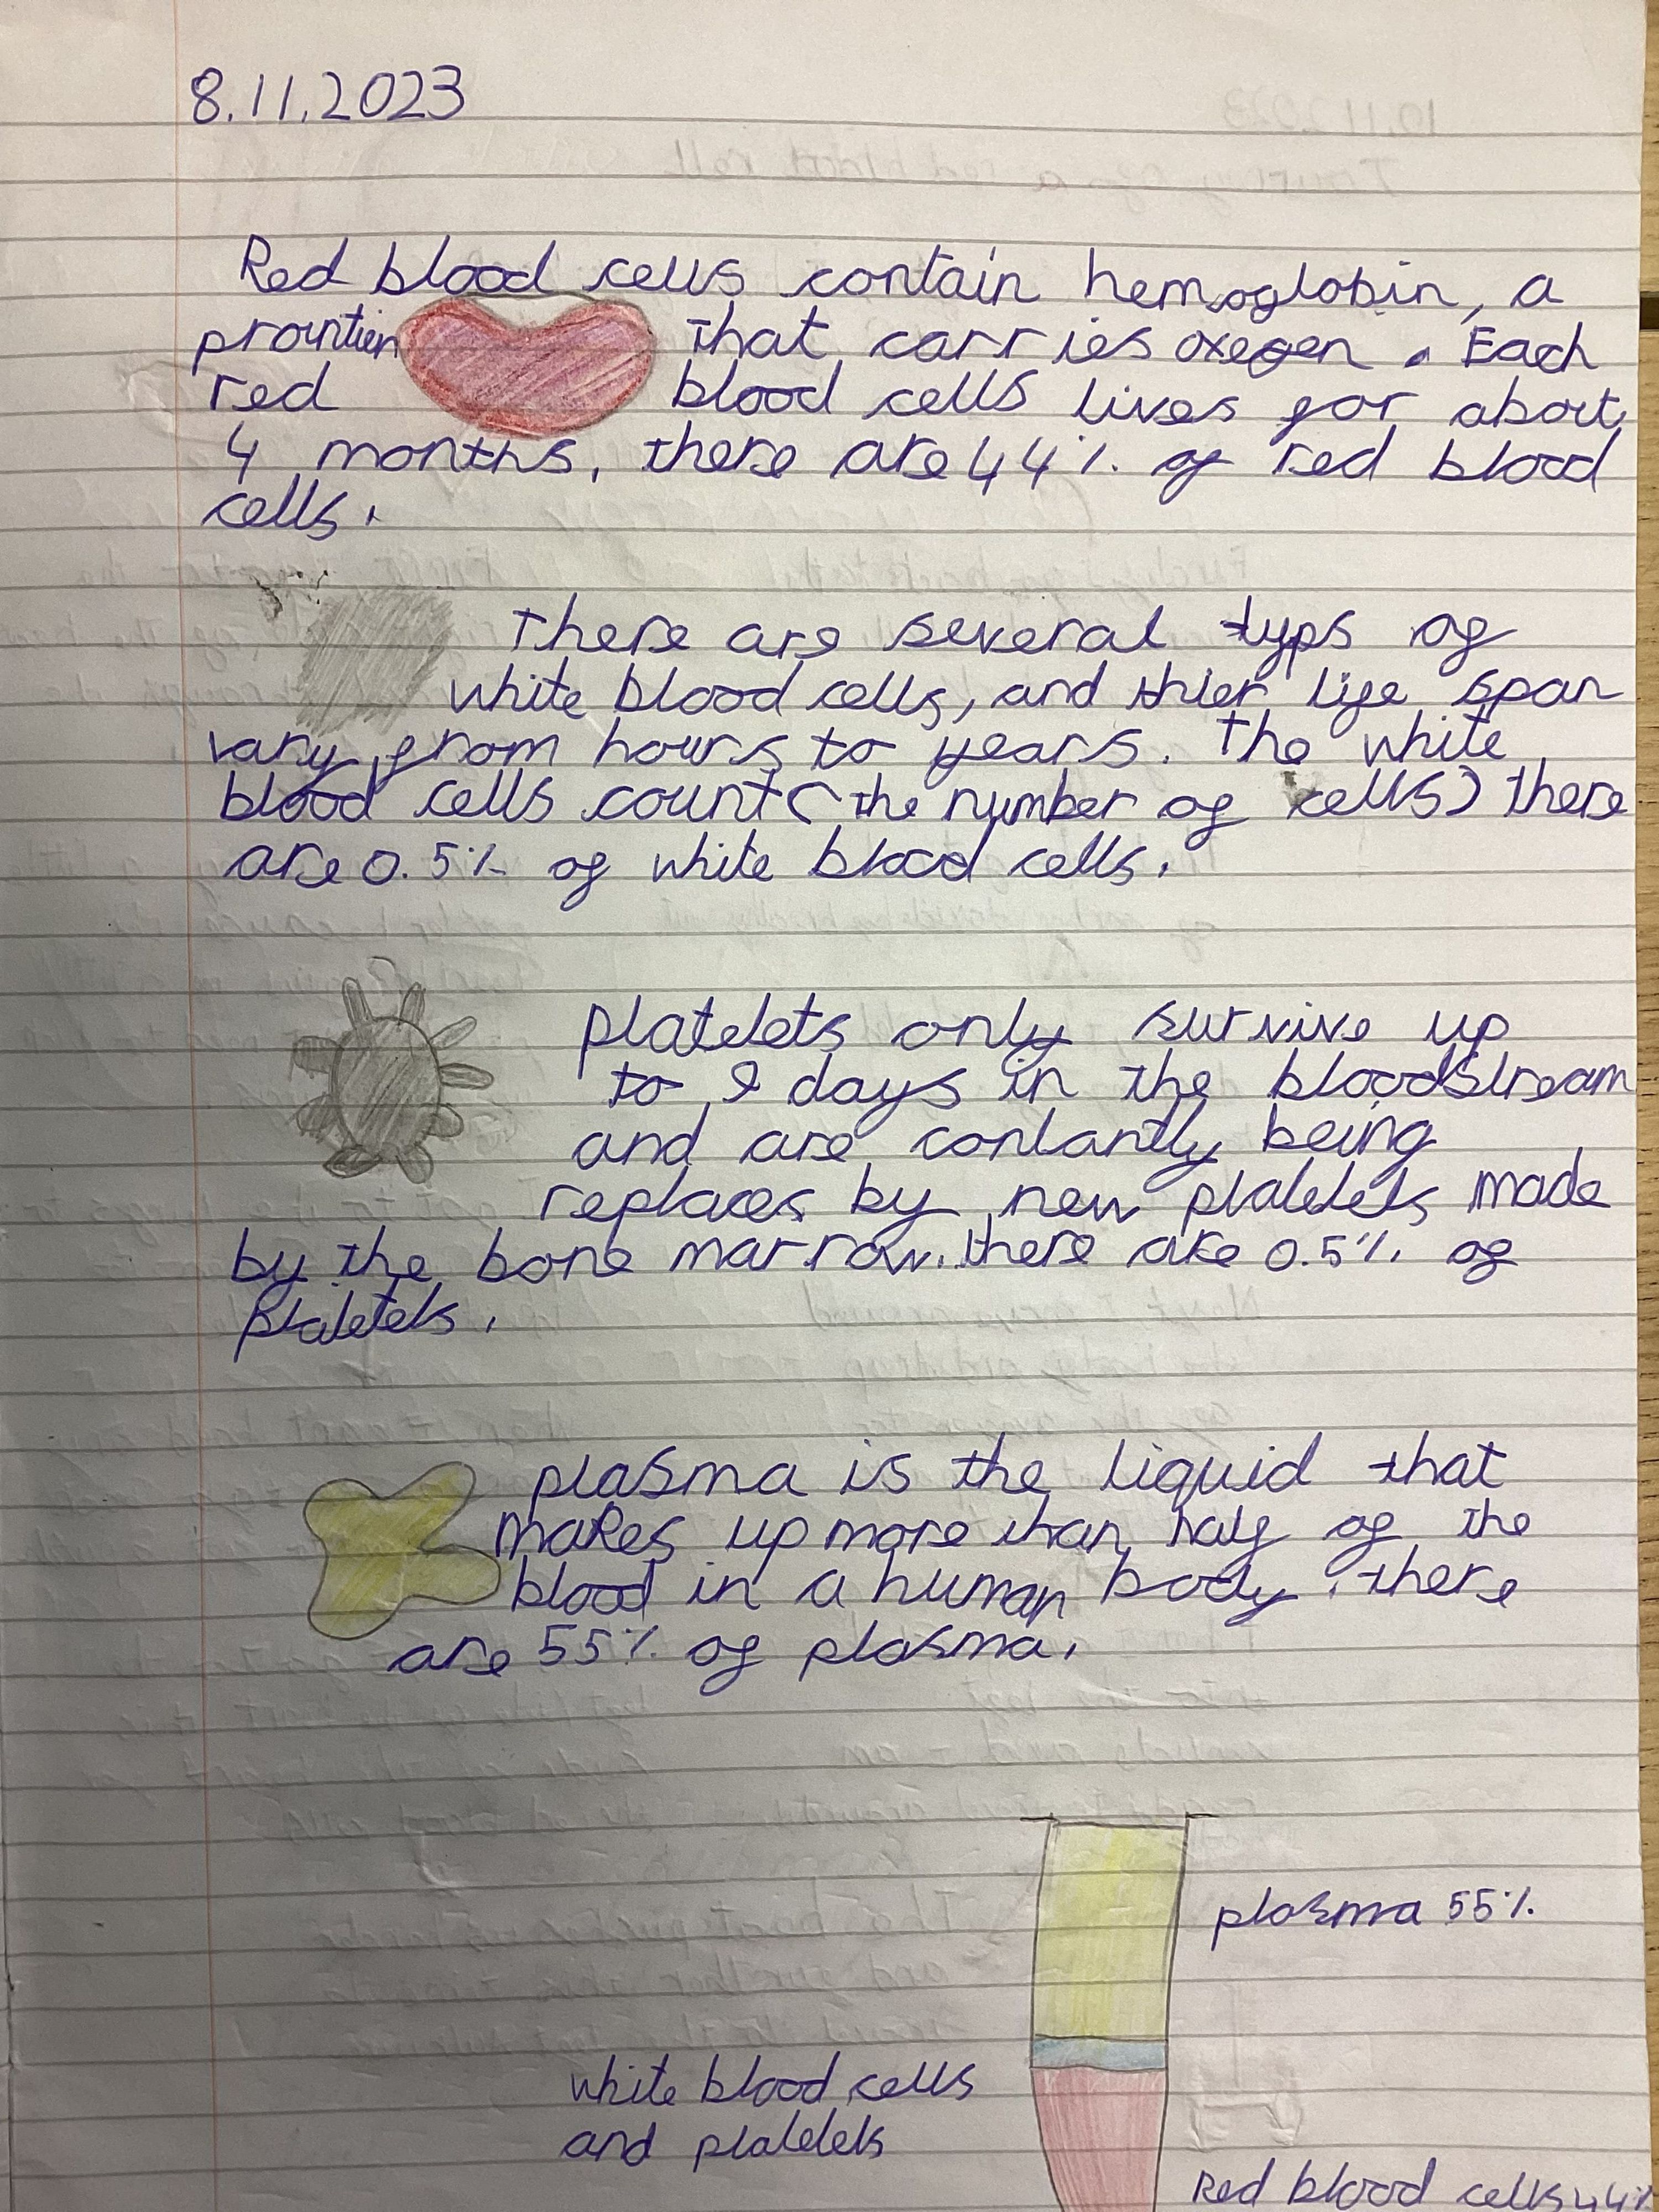 8.11.2023
Red blood cells contain hemoglobin, a
prountien that carries oxegen. Each
red blood cells lives for abort
4 months, there are 44% of red blood
cells.
There are several typs of
white blood cells, and thier life span
vary from hours to years. The white
blood cells count (the number of cells) there
are 0.5% of white blood cells.
platelets only survive up
to 9 days in the bloodstream
and are contantly being
replaces by new platelets made
by the bone marrow. there are 0.5% of
platelets.
plasma is the liquid that
makes up more than half of the
blood in a human body. there
are 55% of plasma.
plasma 55%
white blood cells
and platelets
Red blood cells 44%